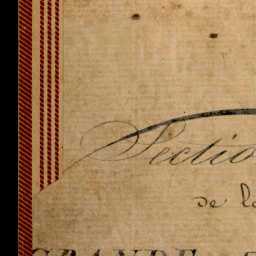 Sectio
de la
GRANDE